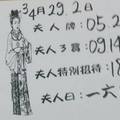 34月29.2日
夫人牌:05.2
夫人3賞:0914
夫人特別招待:18
夫人曰:一六